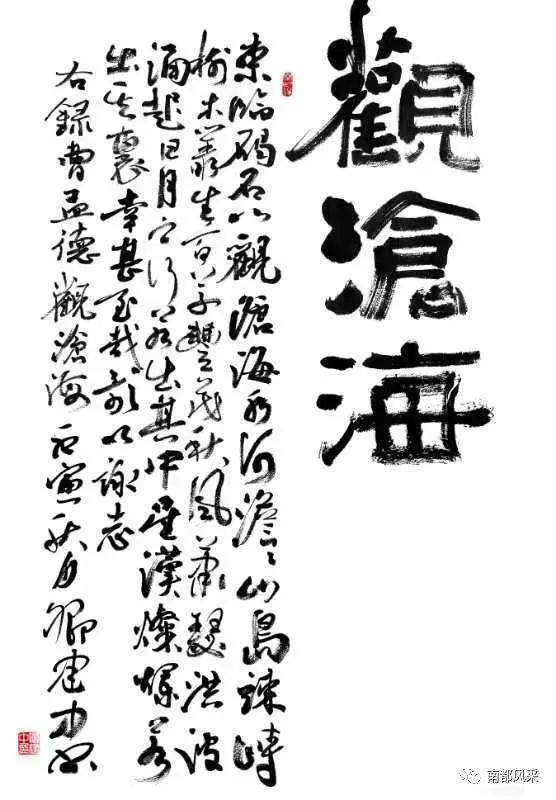 觀滄海
東臨碣石以觀滄海水何澹々山島竦峙
樹木叢生百草豐茂秋風蕭瑟洪波
涌起日月之行若出其中星漢燦爛若
出其裏幸甚至哉歌以詠志
右録曹孟德觀滄海寅秋月
南都风采